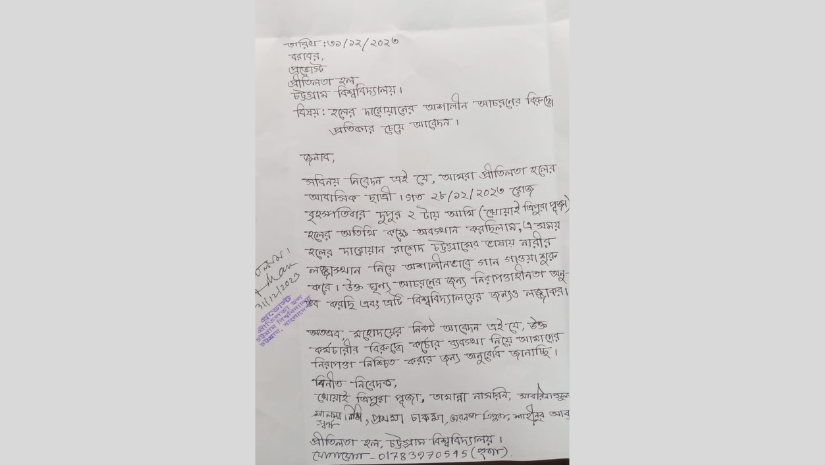 তারিখ : ৩১/১২/২০২৩
বরাবর,
প্রভোস্ট
প্রীতিলতা হল,
চট্টগ্রাম বিশ্ববিদ্যালয়।
বিষয় : হলের দারোয়ানের অশালীন আচরণের বিরুদ্ধে
প্রতিকার চেয়ে আবেদন।
জনাব,
সবিনয় নিবেদন এই যে, আমরা প্রীতিলতা হলের
আবাসিক ছাত্রী। গত ২৮/১২/২০২৩ রোজ
বৃহস্পতিবার দুপুর ২ টায় আমি (খোয়াই ত্রিপুরা পূজা)
হলের অতিথি কক্ষে অবস্থান করছিলাম, এসময়
হলের দারোয়ান রাশেদ চট্টগ্রামের ভাষায় নারীর
লজ্জাস্থান নিয়ে অশালীনভাবে গান গাওয়া শুরু
করে। উক্ত ঘৃণ্য আচরণের জন্য নিরাপত্তাহীনতা অনু-
ভব করছি এবং এটি বিশ্ববিদ্যালয়ের জন্যও লজ্জাকর।
অতএব, মহোদয়ের নিকট আবেদন এই যে, উক্ত
কর্মচারীর বিরুদ্ধে কঠোর ব্যবস্থা নিয়ে আমাদের
নিরাপত্তা নিশ্চিত করার জন্য অনুরোধ জানাচ্ছি।
বিনীত নিবেদক,
খোয়াই ত্রিপুরা পূজা, তামান্না নাসরিন,
চাকমা,
প্রীতিলতা হল, চট্টগ্রাম বিশ্ববিদ্যালয়।
যোগাযোগ - 01783270545 (পূজা)
31/12/2023
প্রভোস্ট